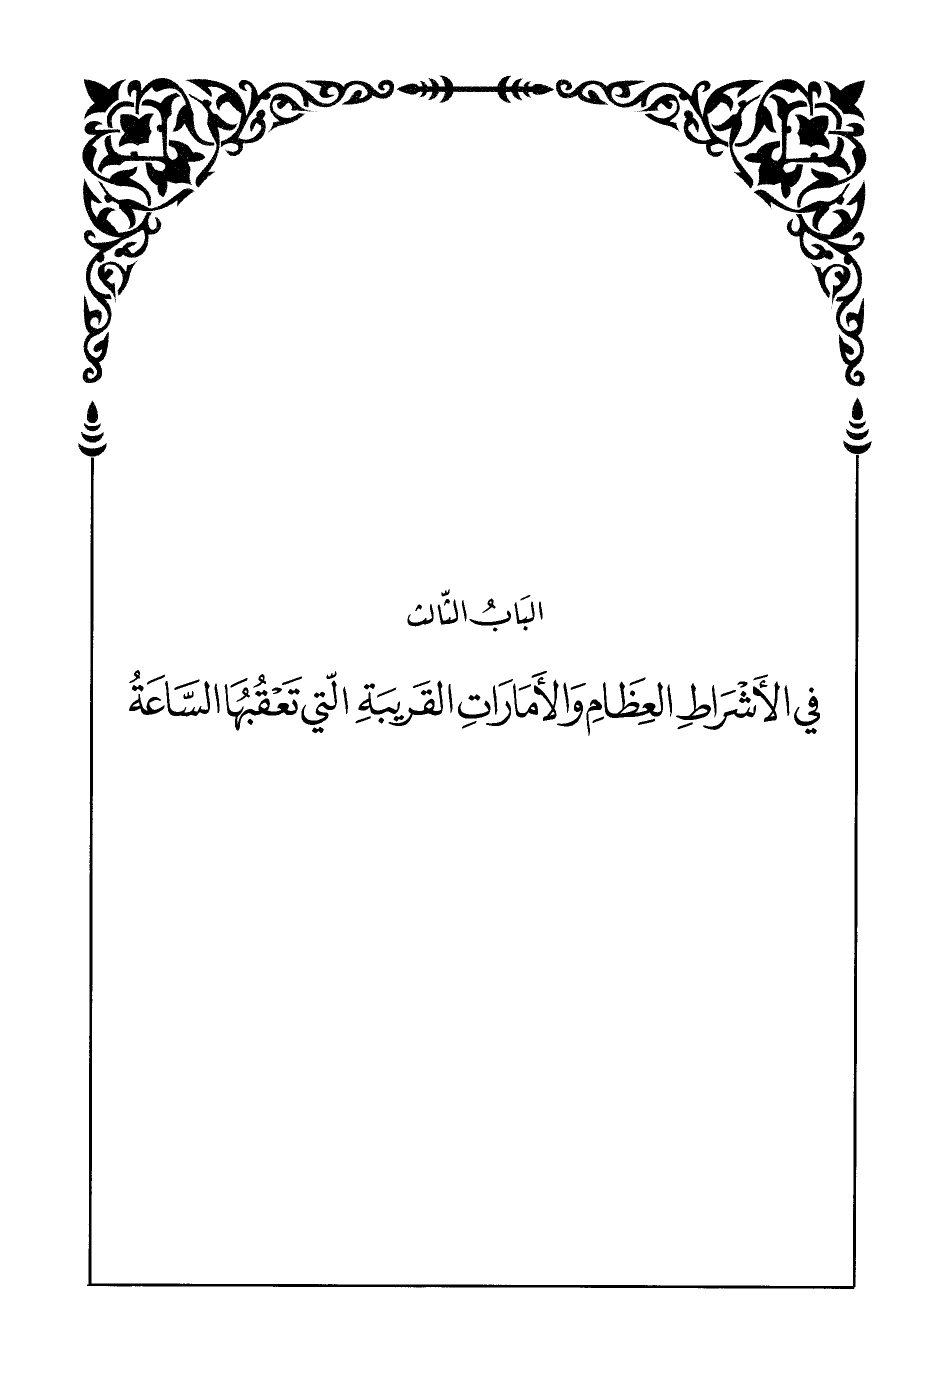 البَابُ الثّالث
فِي الأَشْرَاطِ العِظَامِ وَالأَمَارَاتِ القَرِيبَةِ الّتِي تَعْقُبُهَا السَّاعَةُ